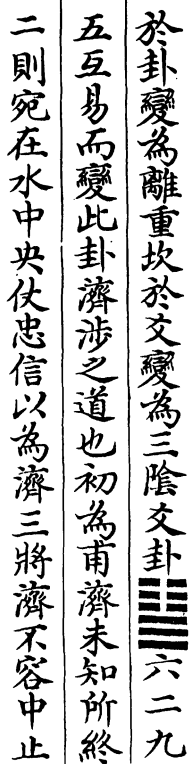 於卦變為離重坎於爻變為三陰爻卦䷾六二九
五互易而變此卦濟涉之道也初為甫濟未知所終
二則宛在水中央仗忠信以為濟三將濟不容中止